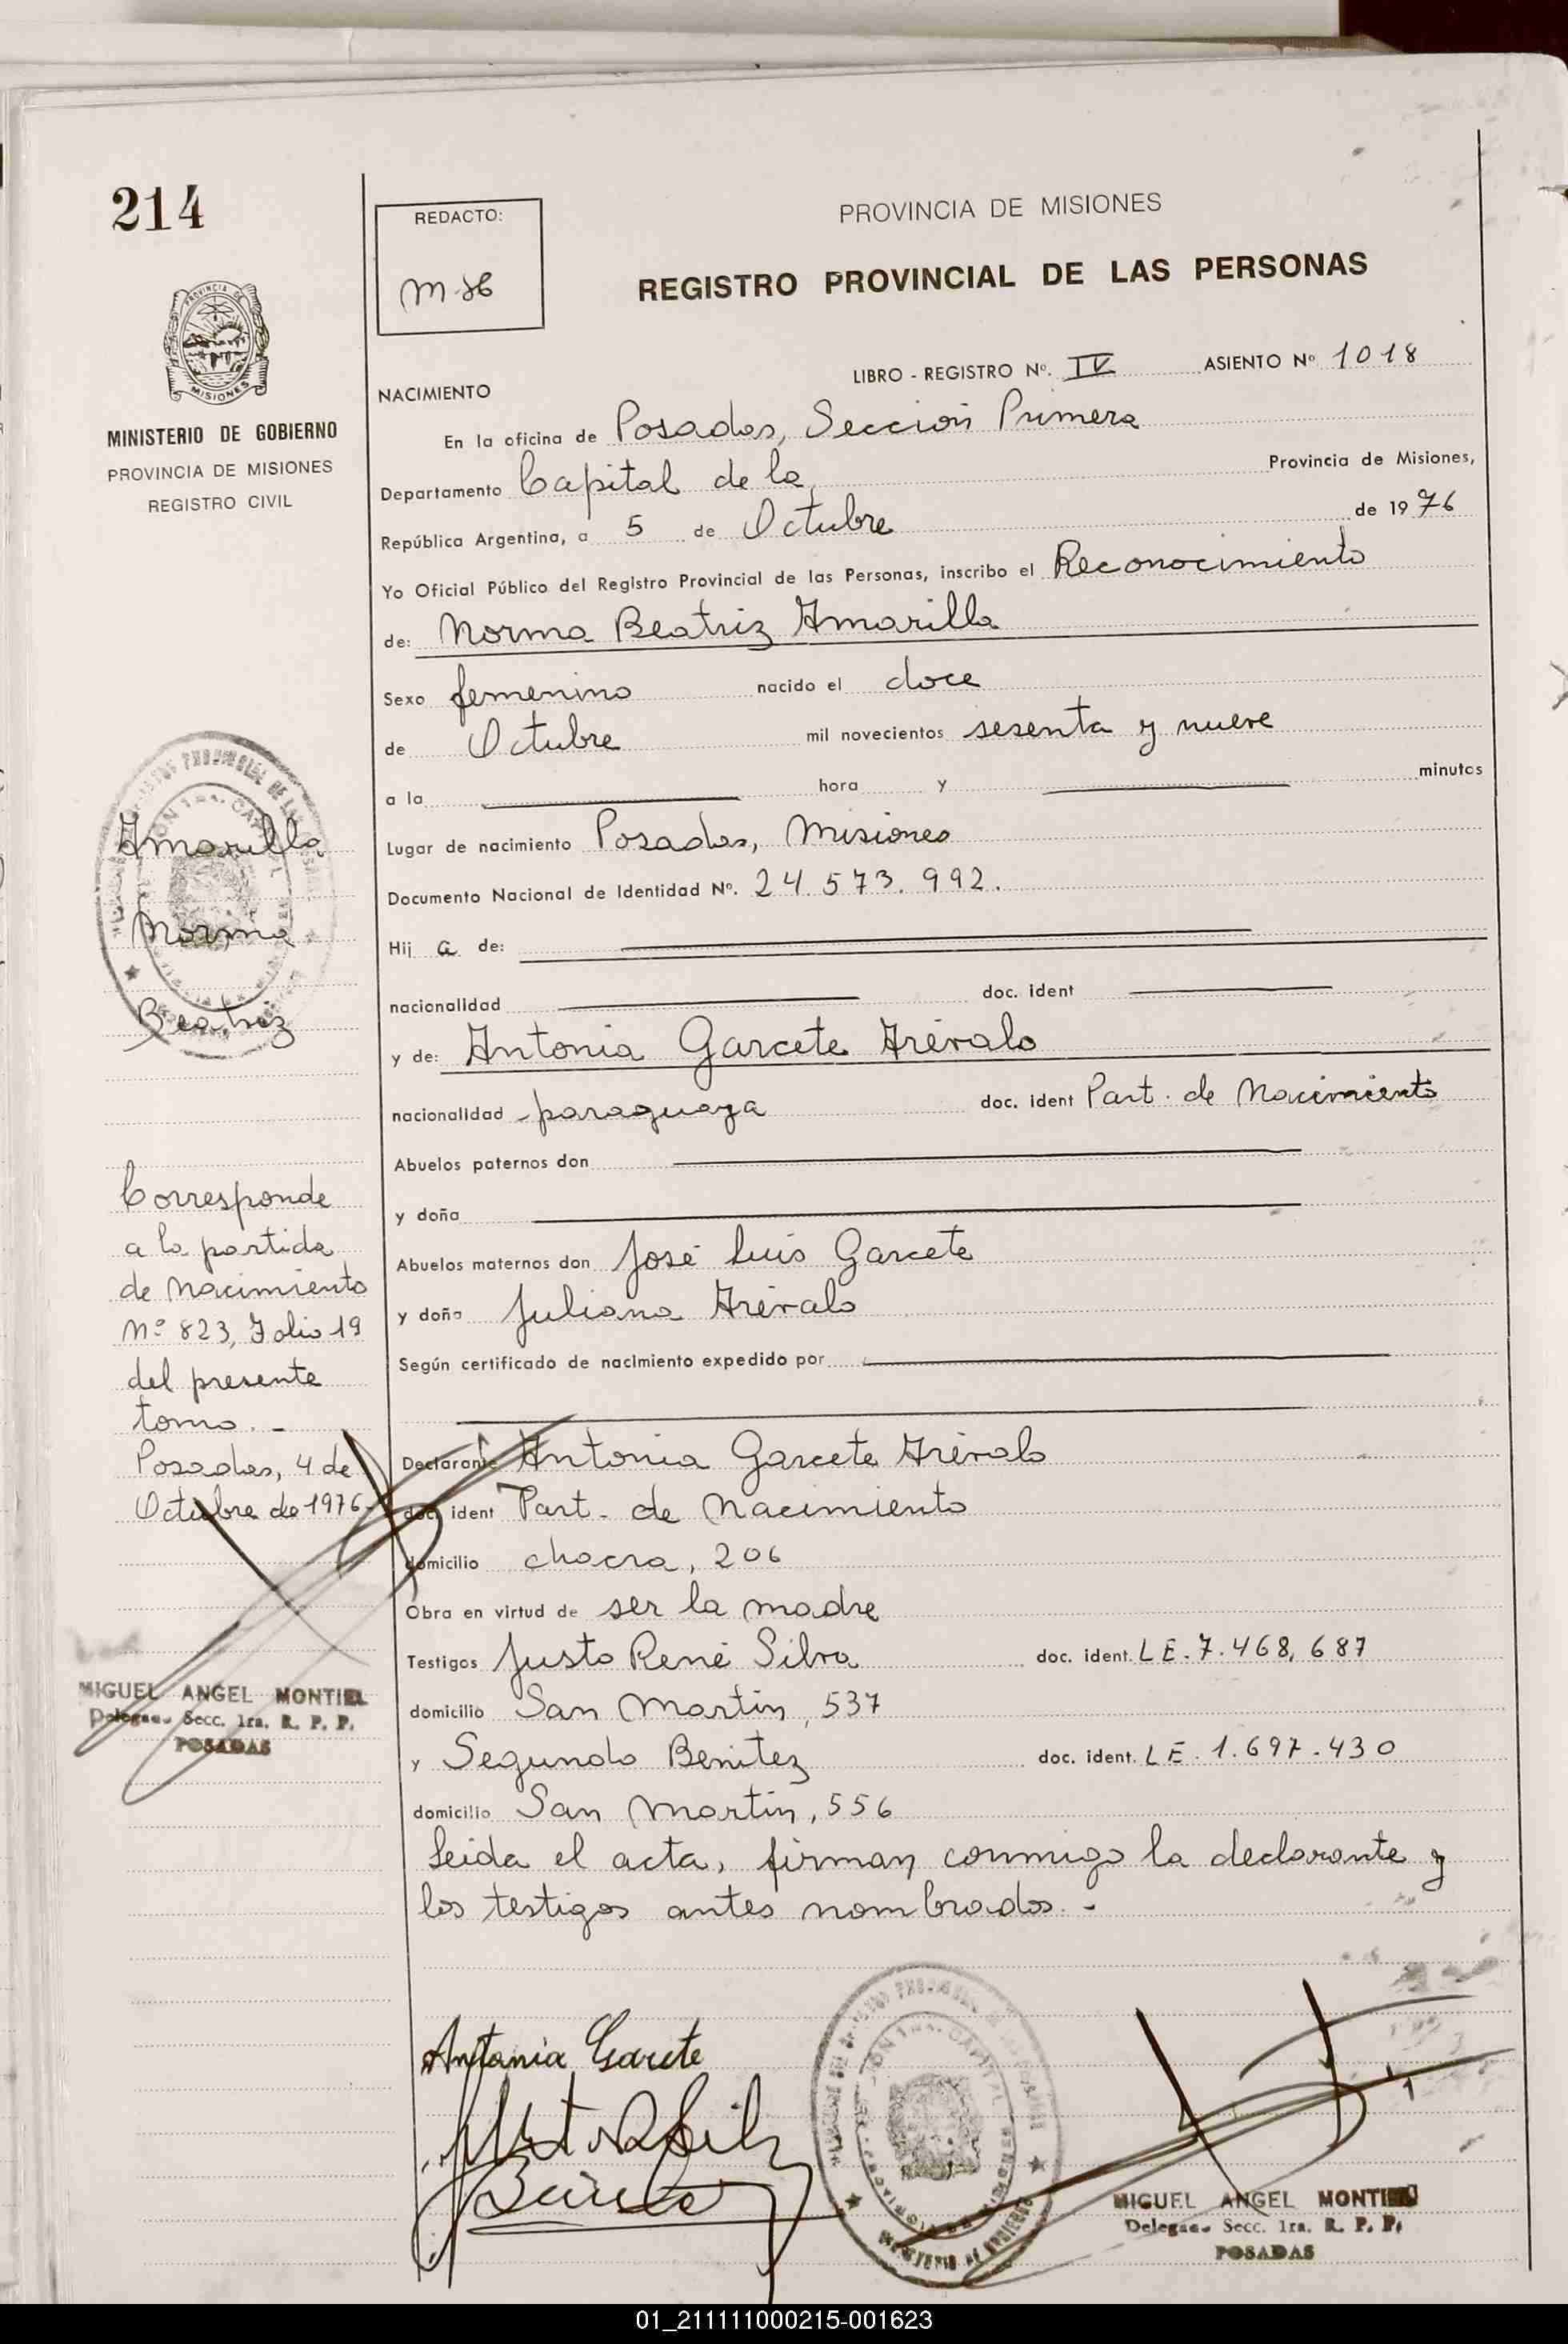 214
REDACTO:
PROVINCIA DE MISIONES
REGISTRO PROVINCIAL DE LAS PERSONAS
MISIONES
MINISTERIO DE GOBIERNO
PROVINCIA DE MISIONES
REGISTRO CIVIL
LIBRO - REGISTRO Nº. IV ASIENTO Nº 1018
NACIMIENTO
En la oficina de Posadas, Sección Primera
Departamento Capital de la Provincia de Misiones,
República Argentina, a 5 de Octubre de 1976
Yo Oficial Público del Registro Provincial de las Personas, inscribo el Reconocimiento
de: Norma Beatriz Amarilla
Sexo femenino nacido el doce
de Octubre mil novecientos sesenta y nueve
a la hora y minutos
Lugar de nacimiento Posadas, Misiones
Documento Nacional de Identidad Nº. 24.573.992.
Hij a de:
nacionalidad doc. ident
y de: Antonia Garcete Arévalo
nacionalidad paraguaya doc. ident Part. de Nacimiento
Abuelos paternos don
y doña
Abuelos maternos don José Luis Garcete
y doña Juliana Arévalo
Según certificado de nacimiento expedido por
Declarante Antonia Garcete Arévalo
doc. ident Part. de Nacimiento
domicilio chacra, 206
Obra en virtud de ser la madre
Testigos Justo René Silva doc. ident. LE. 7.468,687
domicilio San Martín, 537
y Segundo Benítez doc. ident. LE. 1.697.430
domicilio San Martín, 556
Leida el acta, firman conmigo la declarante y
los testigos antes nombrados. -
Amarilla
Norma
Beatriz
Corresponde
a la partida
de Nacimiento
Nº 823, Folio 19
del presente
tomo. -
Posadas, 4 de
Octubre de 1976
MIGUEL ANGEL MONTIEL
Delegado Secc. 1ra. R. P. P.
POSADAS
Antonia Garcete
MIGUEL ANGEL MONTIEL
Delegado Secc. 1ra. R. P. P.
POSADAS
01_211111000215-001623